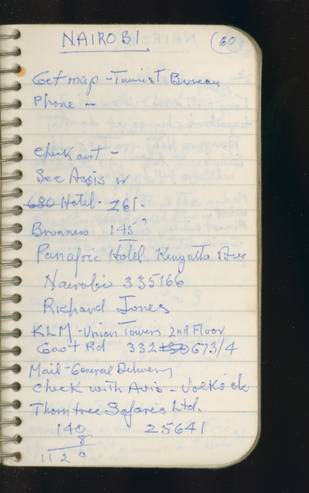 NAIROBI
60
Get map - Tourist Bureau
Phone -
Check out -
See Assis or
680 Hotel. 261.
145
Panafric Hotel Kenyatta Ave
Nairobi 335166
Richard Jones
KLM - Union Towers 2nd Floor
Gov't Rd 332 673/4
Mail - General Delivery
Check with Avis - Volks ok
Thorntree Safaris Ltd.
140 25641
8
1120